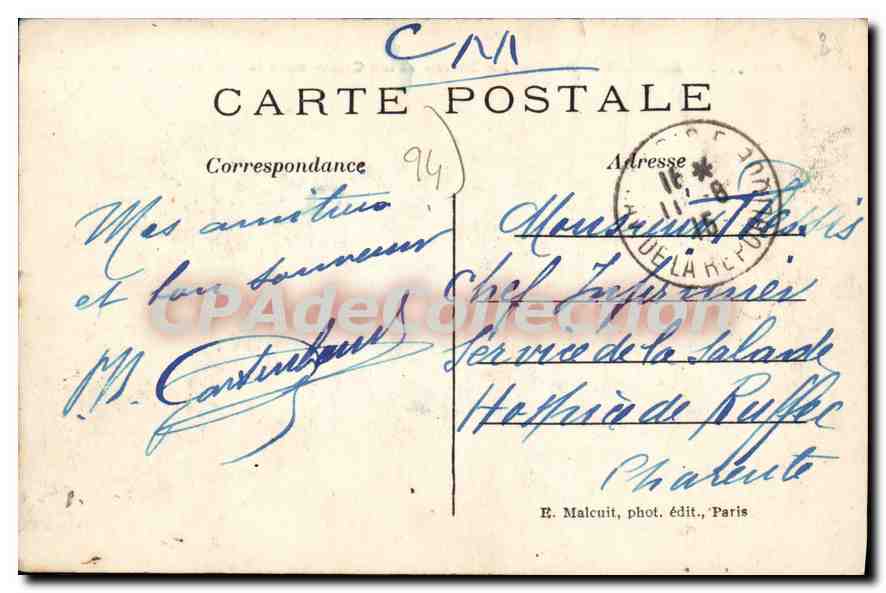 CM
CARTE POSTALE
Correspondance
94
Adresse
Mes amitiés
et bon souvenir
Monsieur
Chef Infirmier
Service de la Salade
Hospice de Ruffec
Charente
16 *
11 - 8
15
DE LA REPU
CPAdeCollection
E. Malcuit, phot. édit., Paris